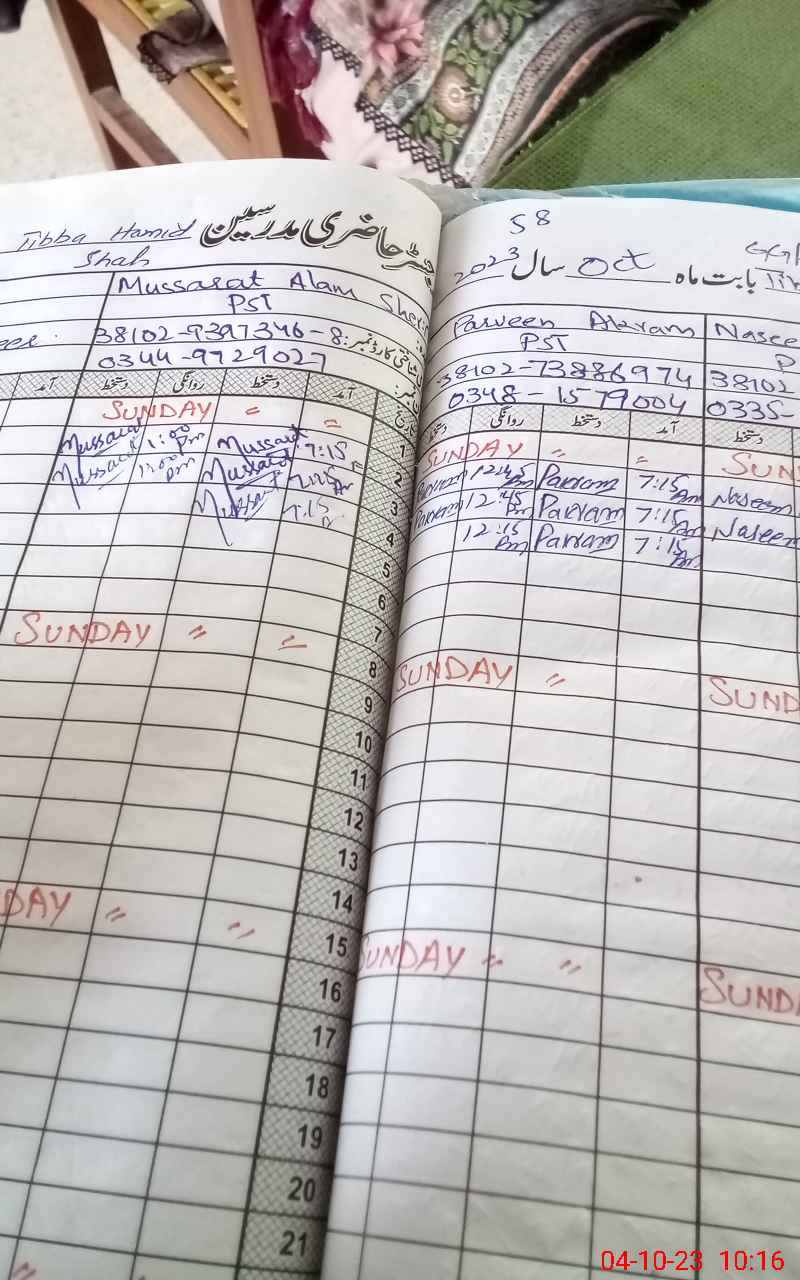 Tibba Hamid
Shah
حاضری مدرسین
Mussarat Alam
PST
38102-9397346-8
0344-9729027
آمد دستخط روانگی دستخط آمد
SUNDAY " "
Mussarat 1:00 Pm Mussarat 7:15
Mussarat 1:00 Pm Mussarat 7:15
Mussarat 7:15
SUNDAY " "
DAY " "
1
2
3
4
5
6
7
8
9
10
11
12
13
14
15
16
17
18
19
20
21
58
2023 سال Oct بابت ماہ
Parveen Akram
PST
38102-73886974
0348-1579004
38102
0335-
دستخط روانگی دستخط آمد دستخط
SUNDAY " " SUN
12:45 Pm Parram 7:15 Am Naseem
12:45 Pm Parram 7:15 Am Naseem
12:15 Pm Parram 7:15 Am
SUNDAY " SUND
SUNDAY " " SUND
04-10-23 10:16